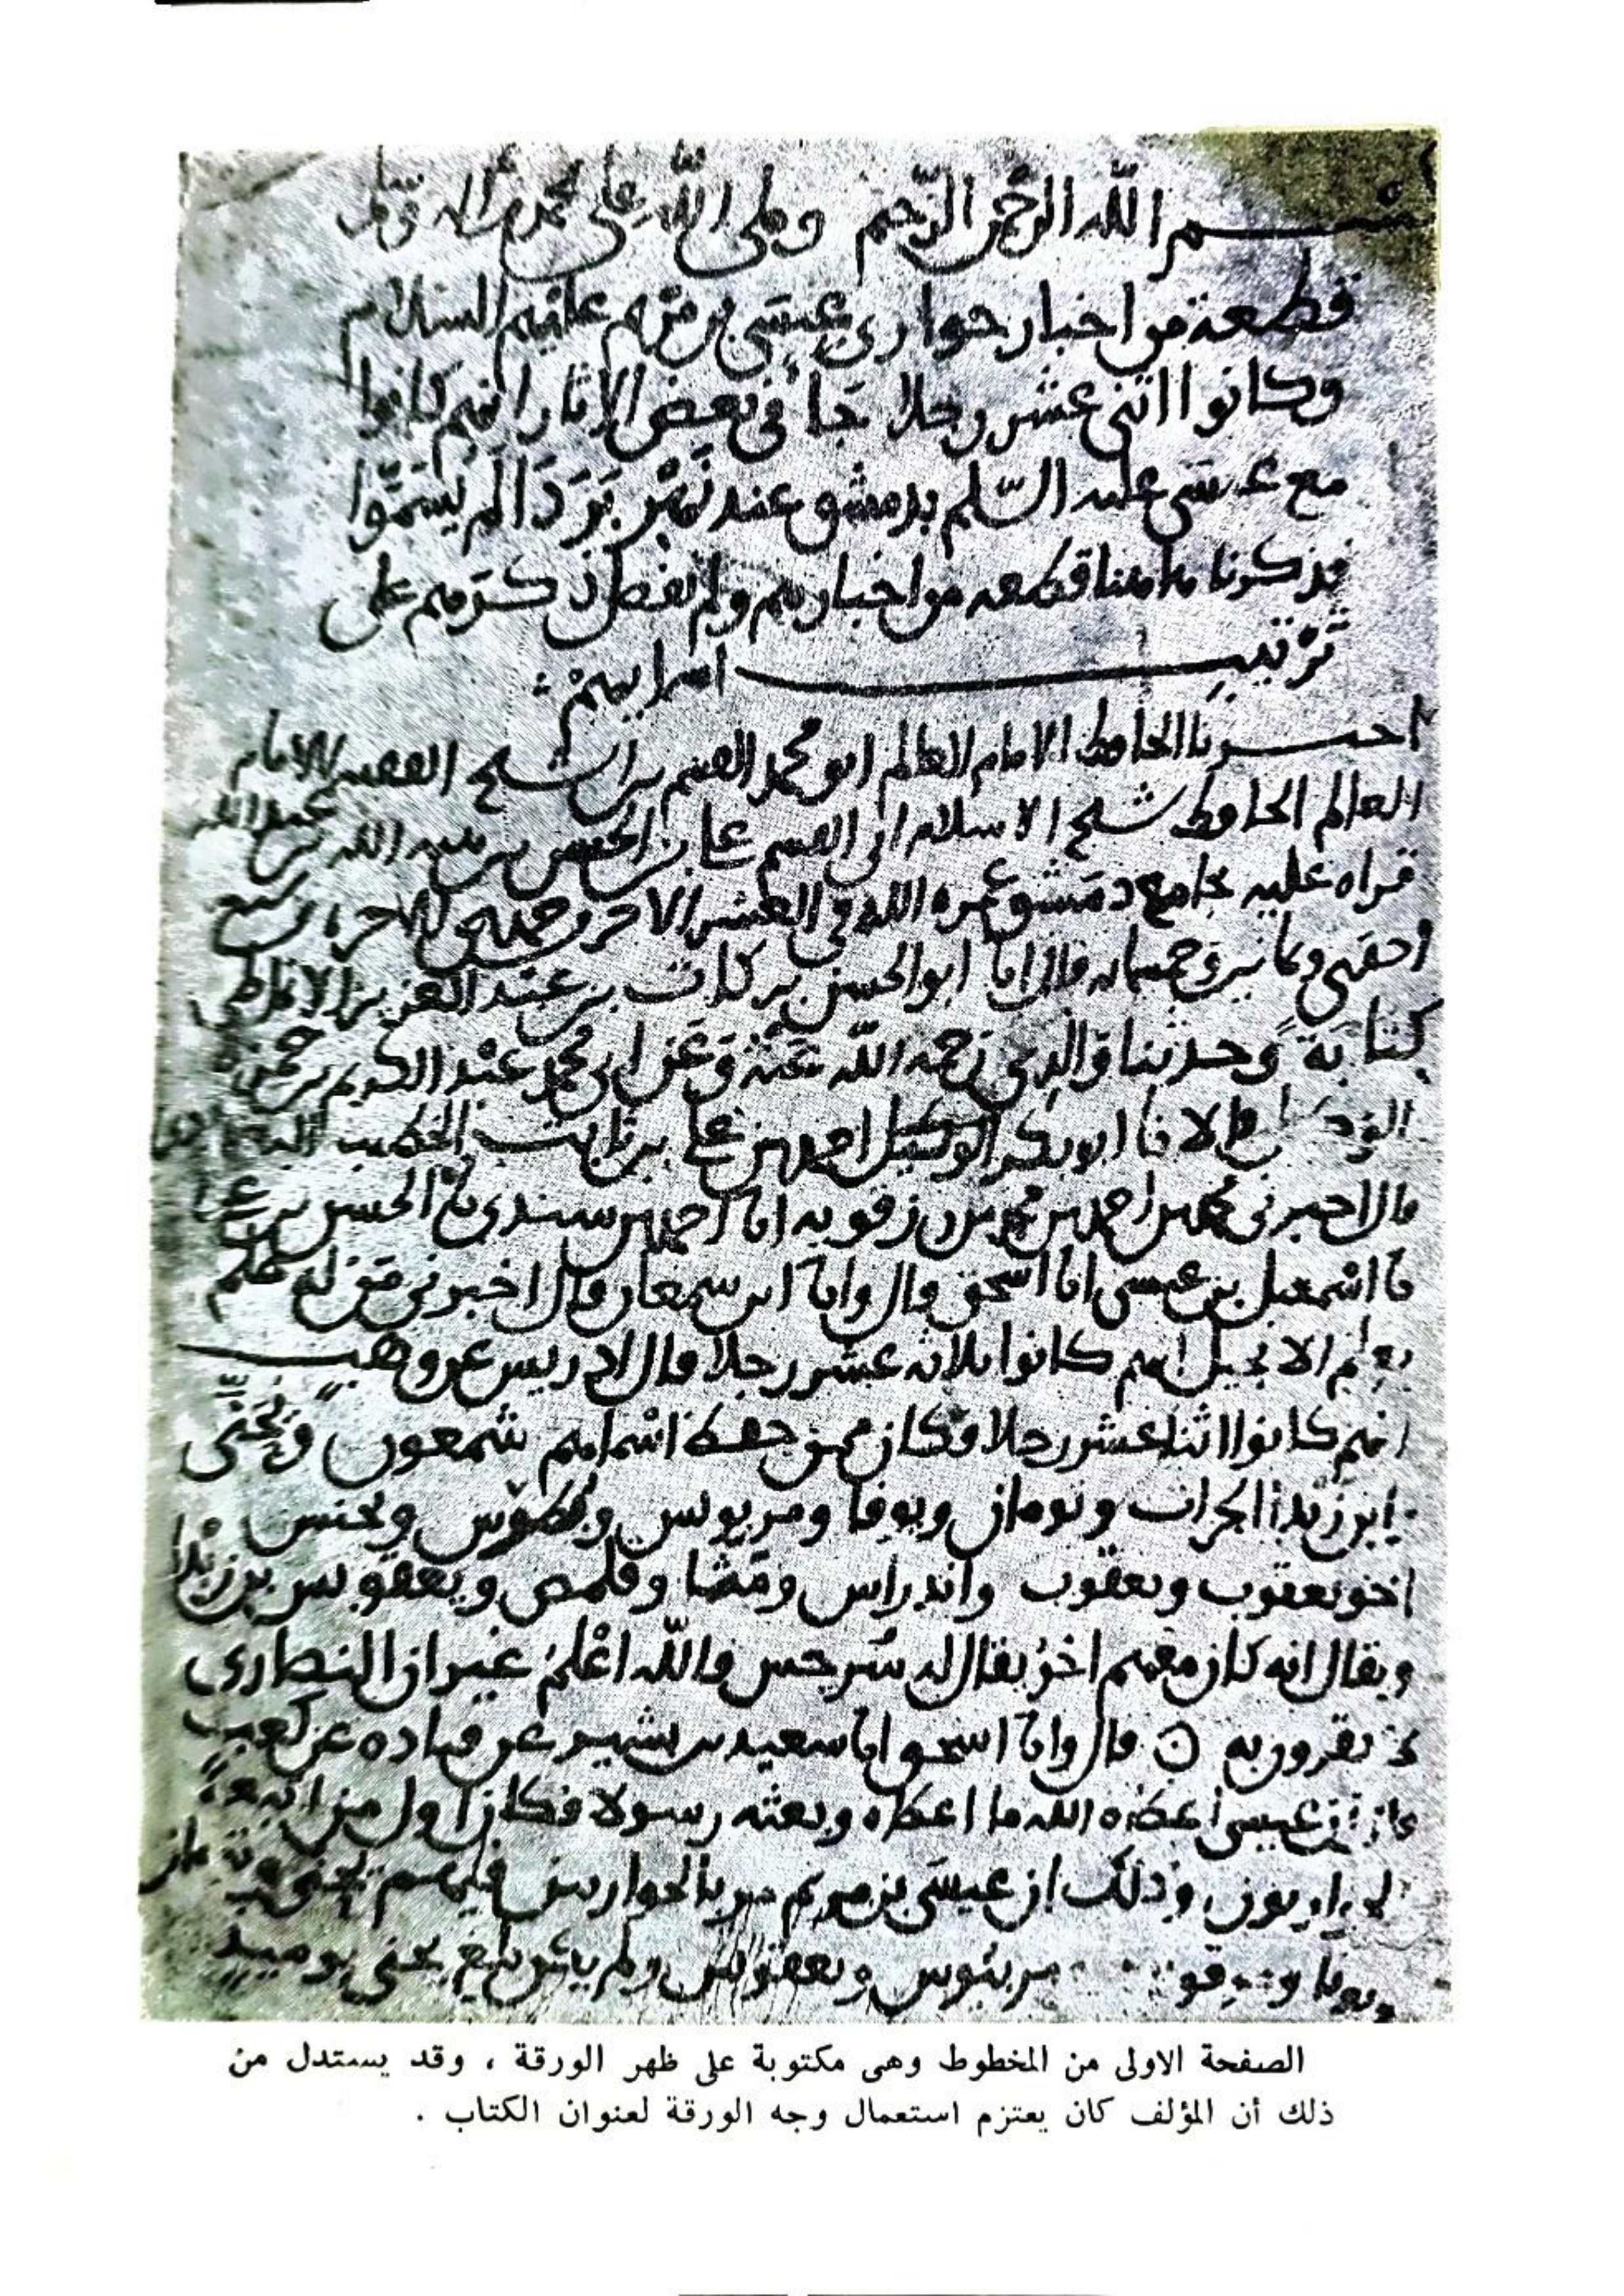 بسم الله الرحمن الرحيم وصلى الله على محمد وآله وسلم
قطعة من اخبار حواري عيسى بن مريم عليهم السلام
وكانوا اثنى عشر رجلا جا في بعض الاثار انهم كانوا
مع عيسى عليه السلم بدمشق عند نهر بردا لم يسموا
فذكرنا هاهنا قطعه من اخبارهم ولم نفصل ذكرهم على
ترتيب اسمايهم
اخبرنا الحافظ الامام العالم ابو محمد القسم بن الشيخ الفقيه الامام
العالم الحافظ شيخ الاسلام ابى القسم على بن الحسن بن هبه الله
قراه عليه بجامع دمشق عمره الله في العشر الاخر جمدى الاخره سبع
وثمانين وخمسمايه قال انا ابو الحسن بركات بن عبد العزيز الانماطى
كتابة وحدثنا والدي رحمه الله عنه وعن ابى محمد عبد الكريم بن حمزة
قالا نا ابو بكر احمد بن على بن ثابت الخطيب
قال اخبرنى محمد بن احمد بن محمد بن رزقويه انا احمد بن سندى نا الحسن بن على
نا اسمعيل بن عيسى انا اسحق قال وانا ابن سمعان قال اخبرنى من له علم
بعلم الانجيل انهم كانوا ثلاثه عشر رجلا قال ادريس عن وهب
انهم كانوا اثنا عشر رجلا فكان ممن حفظ اسمايهم شمعون ويحنى
ابن زبدا الجراب وتومان ويوفا ومريوس وفطرس ويحنس
اخو يعقوب ويعقوب واندراس ومتا وفلمص ويعقوبس بن زبدا
ويقال انه كان معهم اخر يقال له سرجس والله اعلم غير ان النصارى
لا يقرون به ه قال وانا اسحق انا سعيد بن بشير عن قتاده عن كعب
عيسى اعطاه الله ما اعطاه وبعثه رسولا فكان اول من اتبعه
الحواريون وذلك ان عيسى بن مريم مر بالحواريين فيهم يحنى
ويوفا مريوس ويعقوبس ولم يكن يحنى يوميد
الصفحة الاولى من المخطوط وهى مكتوبة على ظهر الورقة ، وقد يستدل من
ذلك أن المؤلف كان يعتزم استعمال وجه الورقة لعنوان الكتاب .